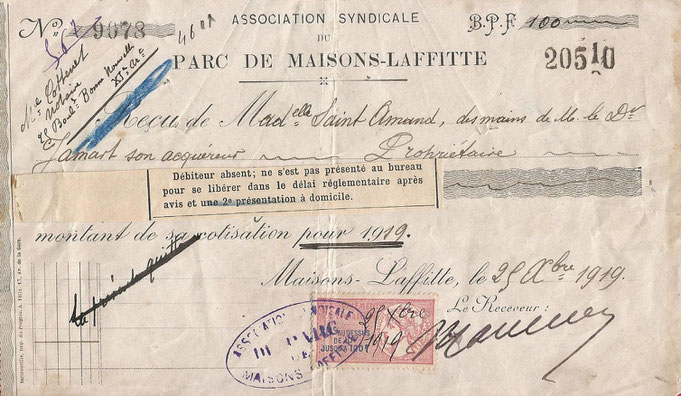 Nº 9078
46
ASSOCIATION SYNDICALE
DU
PARC DE MAISONS-LAFFITTE
B.P.F 100
20510
Mᵉ Cottenet
Notaire
25 Boulᵈ Bonne Nouvelle
XIᵉ Arᵗ
Reçu de Madᵉˡˡᵉ Saint Amand, des mains de M. le Dʳ
Jamart son acquéreur Propriétaire
Débiteur absent; ne s'est pas présenté au bureau
pour se libérer dans le délai réglementaire après
avis et une 2ᵉ présentation à domicile.
montant de sa cotisation pour 1919.
Maisons-Laffitte, le 25 Xbre 1919.
Le présent quitt
Le Receveur:
ASSOCIATION SYNDICALE
DU PARC
DE
MAISONS LAFFITTE
25 Xbre
1919
AU DESSUS
JUSQU'A 100F